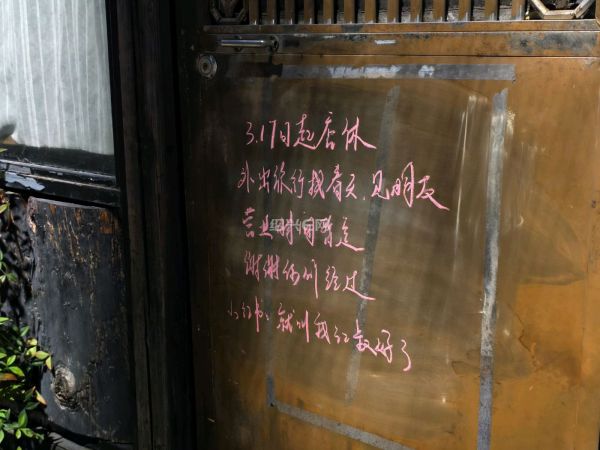 3.17日起店休
外出旅行找春天.见朋友
营业时间暂定
谢谢你们经过
小红书：就叫我红叔好了